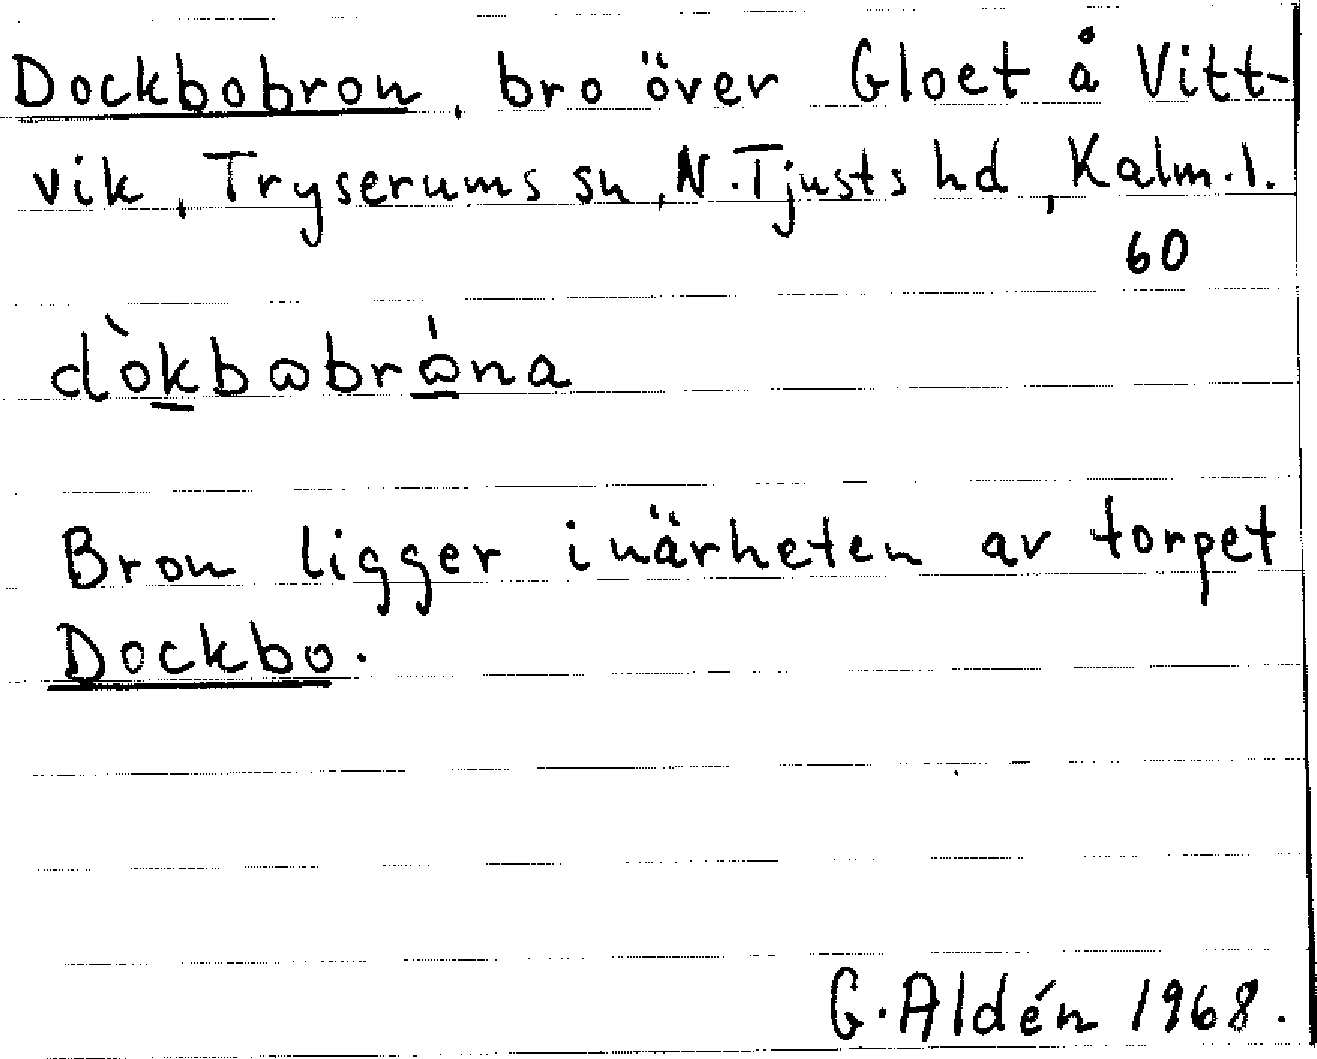 Dockbobron, bro över Gloet å Vitt-
vik, Tryserums sn, N. Tjusts hd, Kalm. l.
60
dòkbꞷbrꞷ́na
Bron ligger i närheten av torpet
Dockbo.
G. Aldén 1968.